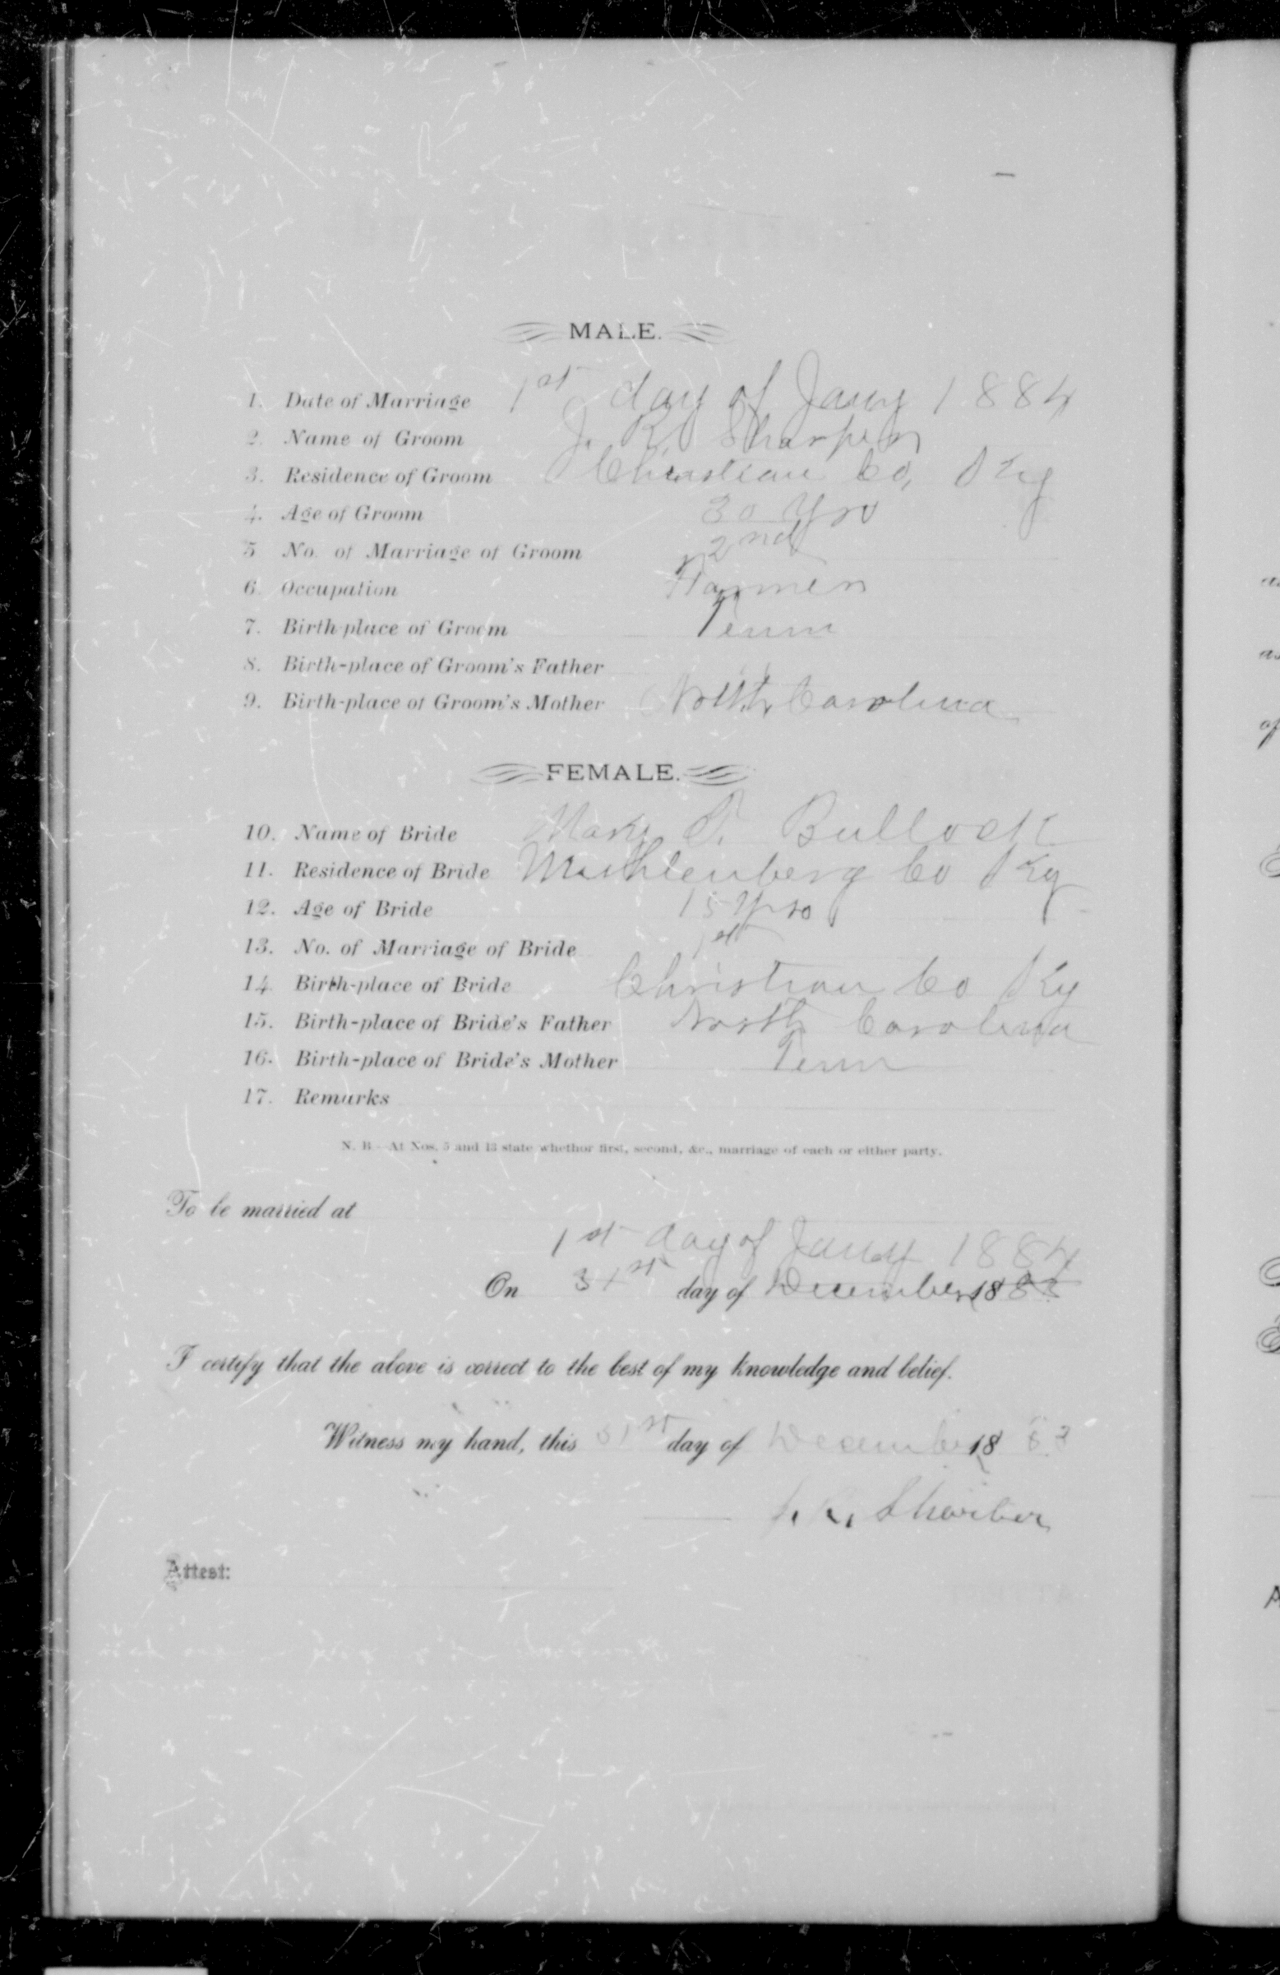 MALE.
1. Date of Marriage 1st day of Jany 1884
2. Name of Groom J. R. Sharper
3. Residence of Groom Christian Co, Ky
4. Age of Groom 30 Yrs
5 No. of Marriage of Groom 2nd
6. Occupation Farmer
7. Birth-place of Groom Tenn
8. Birth-place of Groom's Father "
9. Birth-place of Groom's Mother North Carolina
FEMALE.
10. Name of Bride Mary T. Bullock
11. Residence of Bride Muhlenberg Co Ky
12. Age of Bride 15 Yrs
13. No. of Marriage of Bride 1st
14. Birth-place of Bride Christian Co Ky
15. Birth-place of Bride's Father North Carolina
16. Birth-place of Bride's Mother Tenn
17. Remarks
N. B.—At Nos. 5 and 13 state whether first, second, &c., marriage of each or either party.
To be married at
1st day of Jany 1884
On 31st day of December 1883
I certify that the above is correct to the best of my knowledge and belief.
Witness my hand, this 31st day of December 1883
Attest: